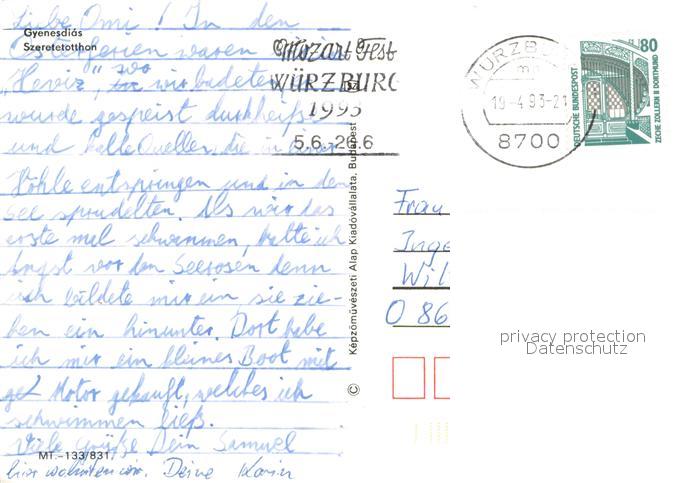 Gyenesdiás
Szeretetotthon
Liebe Omi! In den
Osterferien waren
"Heviz", wo wir badeten,
wurde gespeist durch heiße
und kalte Quellen, die in einer
Höhle entspringen und in den
See sprudelten. Als wir das
erste mal schwammen, hatte ich
Angst vor den Seerosen denn
ich bildete mir ein, sie zie-
hen ein hinunter. Dort habe
ich mir ein kleines Boot mit
Motor gekauft, welches ich
schwimmen ließ.
Viele Grüße Dein Samuel
MT.-133/831.
hier wohnten wir. Deine Karin
© Képzőművészeti Alap Kiadóvállalata, Budapest
Mozart Fest
WÜRZBURG
1993
5.6.-26.6
WÜRZB
mn
19-4.93-21
8700
80
DEUTSCHE BUNDESPOST
ZECHE ZOLLERN II DORTMUND
Frau
Inge
Wil
O 86
privacy protection
Datenschutz